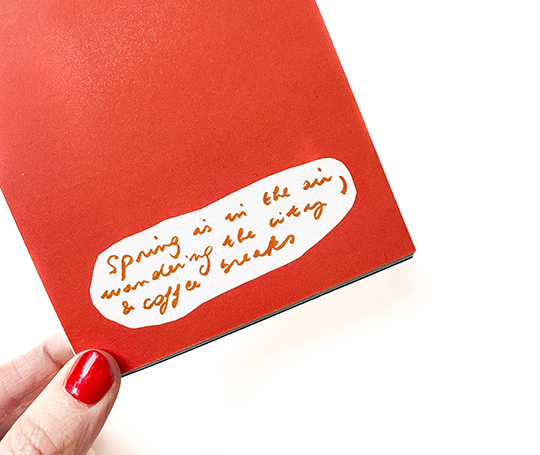 Spring is in the air,
wandering the citay
& coffee breaks